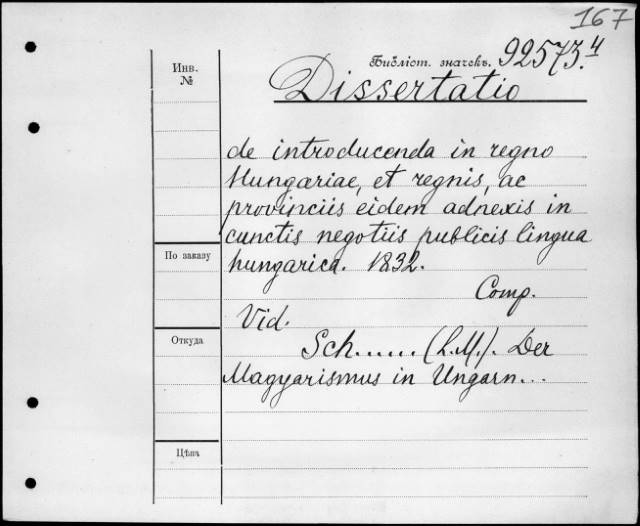 167
Инв.
№
Библіот. значекъ. 92573.4
Dissertatio
de introducenda in regno
Hungariae, et regnis, ac
provinciis eidem adnexis in
cunctis negotiis publicis lingua
hungarica. 1832.
По заказу
Comp.
Vid.
Откуда
Sch..... (L.M.). Der
Magyarismus in Ungarn...
Цѣна